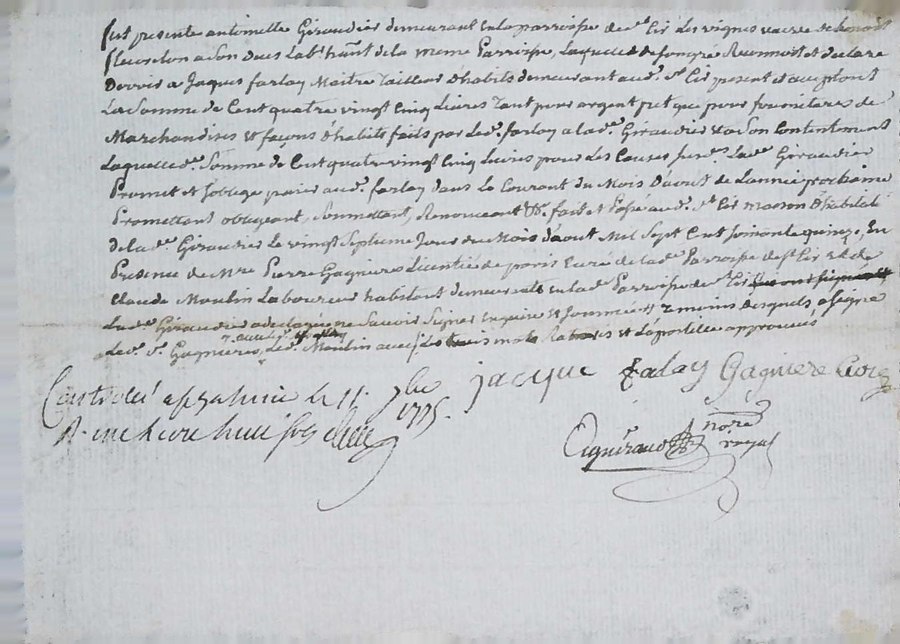 fut presente antoinette Giraudier demeurant en la parroisse de st Cir les vignes veuve de benoit
fleurdon a Son deces Labr hant de la meme Parroisse, Laquelle de son gré Reconnoit et declare
Devoir a Jaques farlay Maitre tailleur d'habits demeurant aud. st Cir present et acceptant
La Somme de Cent quatre vingt Cinq Livres tant pour argent pret que pour fournitures de
Marchandises et façons d'habits faits par Led. farlay a lad.e Giraudier et a Son Contentement
Laquelle d. Somme de Cent quatre vingt Cinq Livres pour Les Causes susd. Lad.e Giraudier
Promet et s'oblige paier aud. farlay dans Le Courant du Mois D'aoust de L'année prochaine
Promettant obligeant, Soumettant, Renonceant &c. fait et Passé aud. st Cir maison d'habitation
de la d.e Giraudier Le vingt Septieme Jour du Mois d'aout Mil Sept Cent soixante quinze, En
Presence de Mre Pierre Gagniere Licentié de paris Curé de lad.e Parroisse de st Cir et de
Claude Moulin Laboureur habitant demeurant en lad.e Parroisse de st Cir
Lad.e Giraudier a declaré ne Savoir Signer enquise et sommée et 2 moins desquels, a signé
Led. sr Gagniere, Led. Moulin Les mots Raturés et L'apostille approuvés
Jacque falay Gagniere Curé
Controllé a le 11. 7bre
1775.
R. une livre huit sols
notre
royal